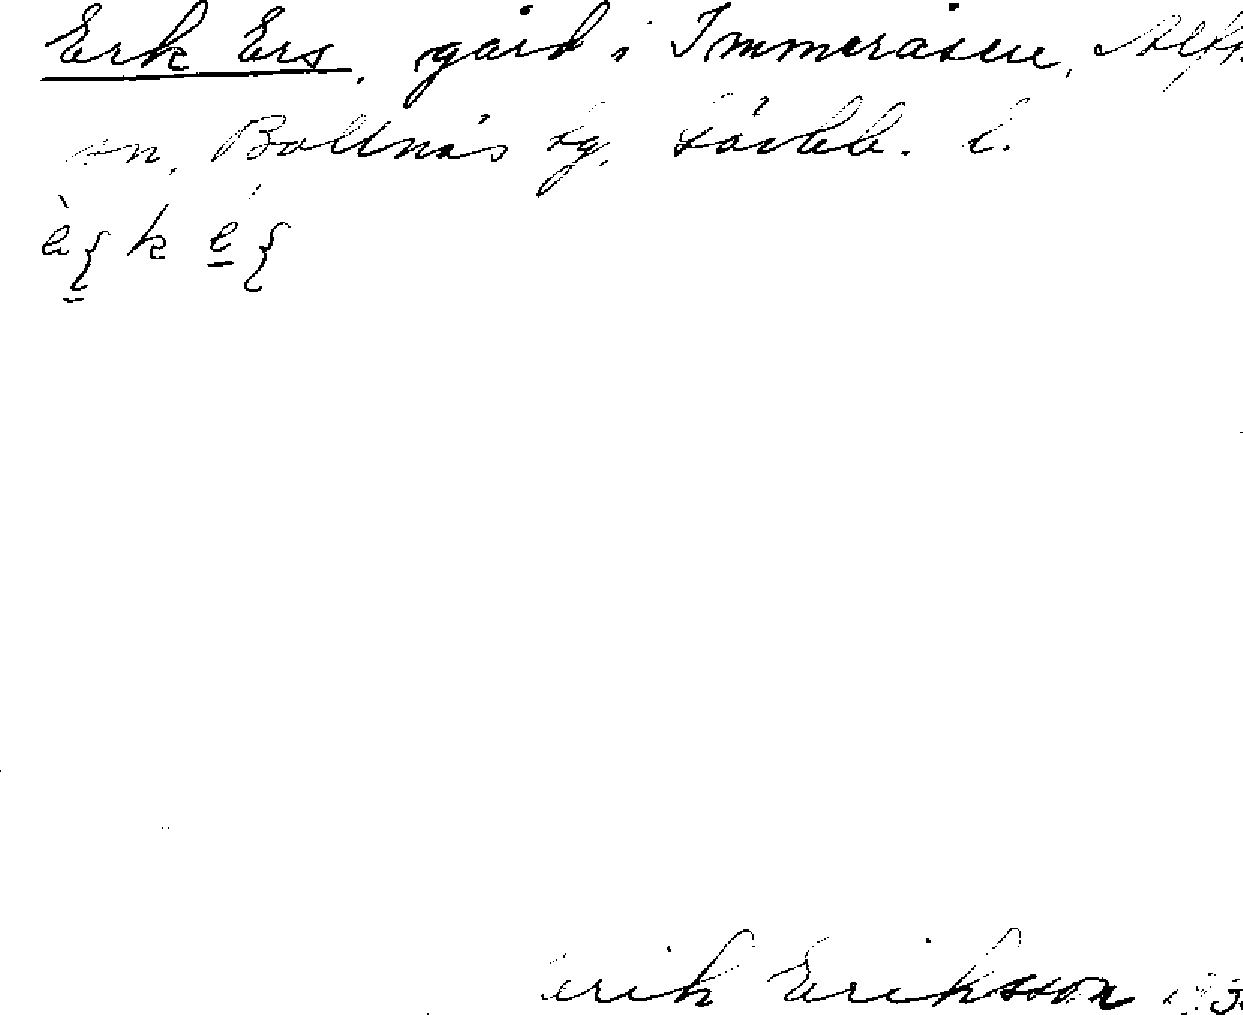 Erk Ers, gård i Immeråsen, Alfta
sn, Bollnäs tg, Gävleb. l.
Erik Eriksson